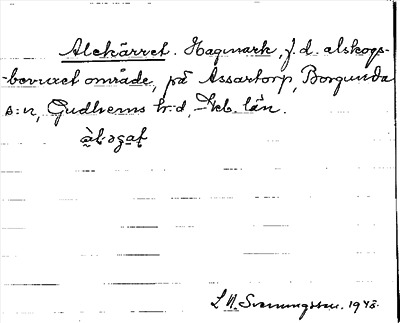 Alekärret. Hagmark, f.d. alskogs-
-bevuxet område, på Assartorp, Borgunda
s:n, Gudhems h:d, Skb. län.
L. N. Svenungsson. 1948.